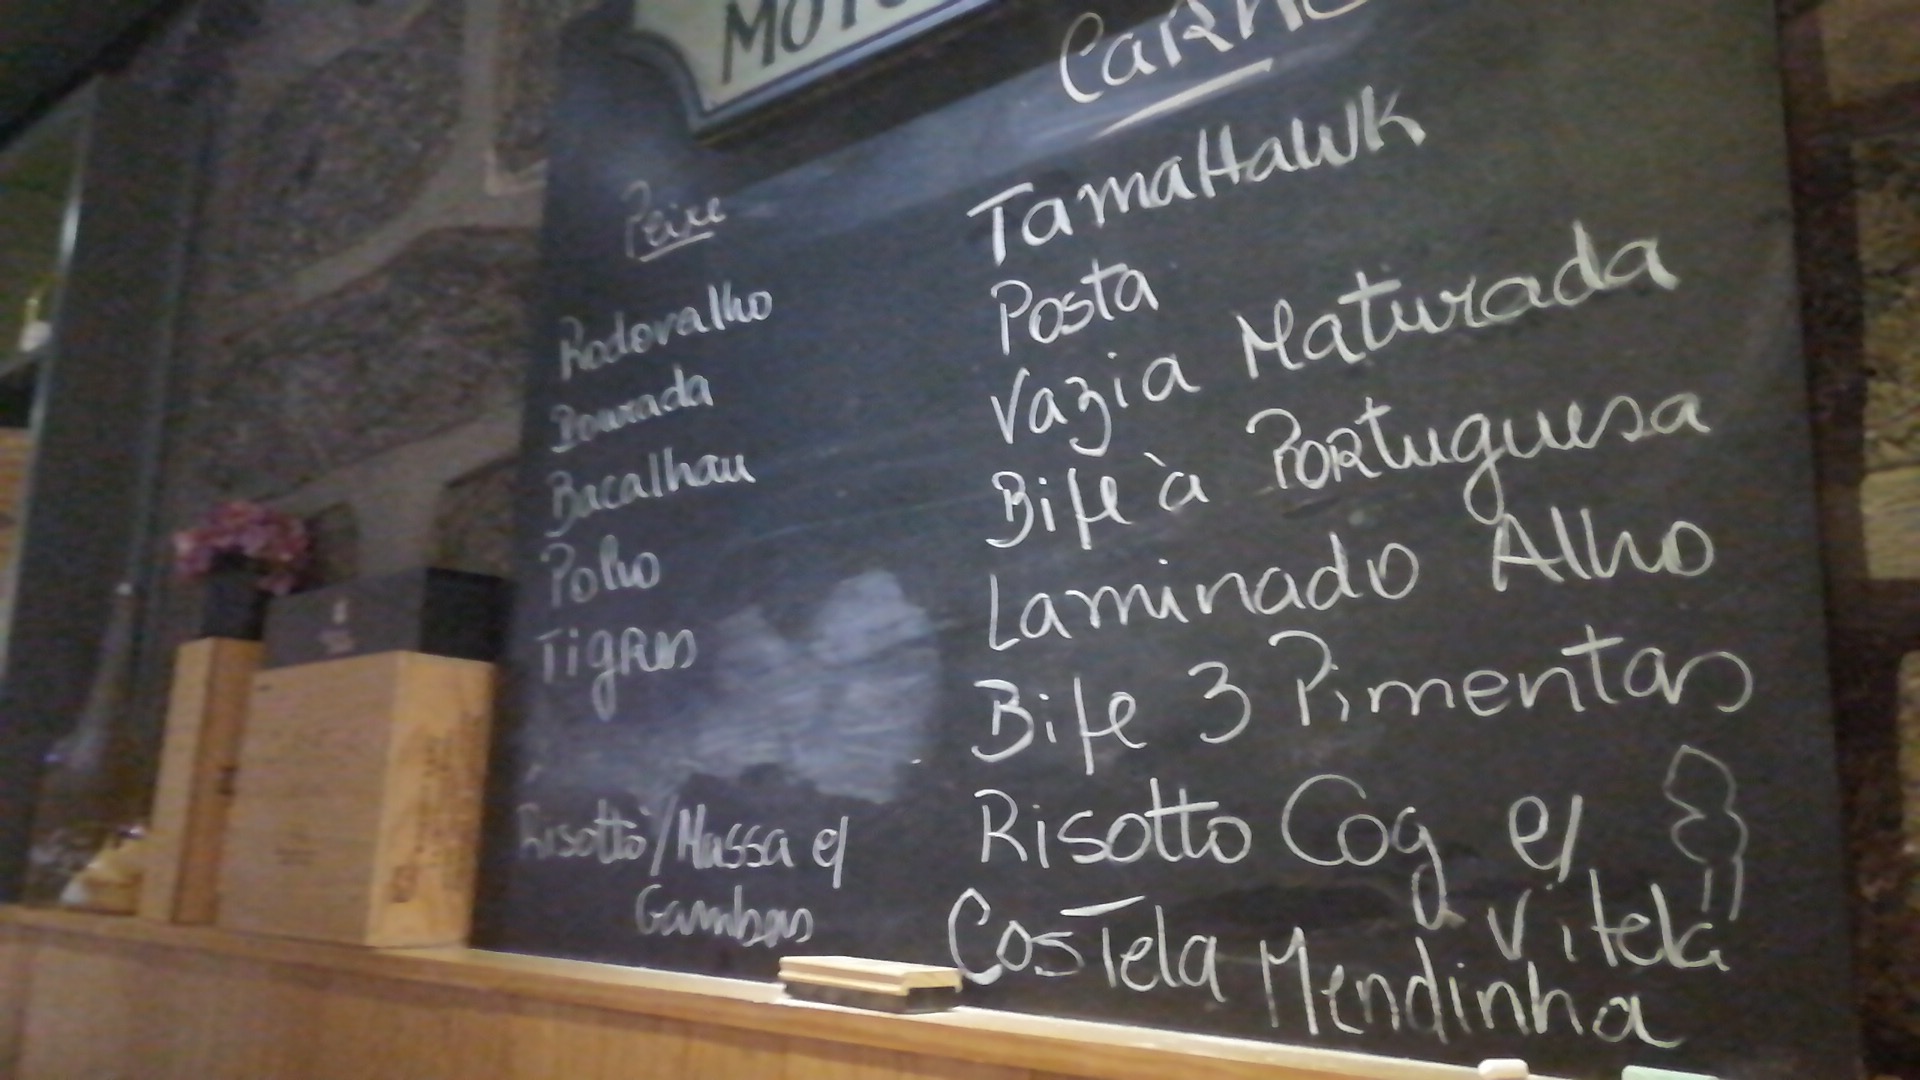 Peixe
Rodovalho
Dourada
Bacalhau
Polvo
Tigres
Risotto/Massa c/
Gambas
CaRne
TamaHawk
Posta
Vazia Maturada
Bife à Portuguesa
Laminado Alho
Bife 3 Pimentas
Risotto Cog c/
Vitela
Costela Mendinha